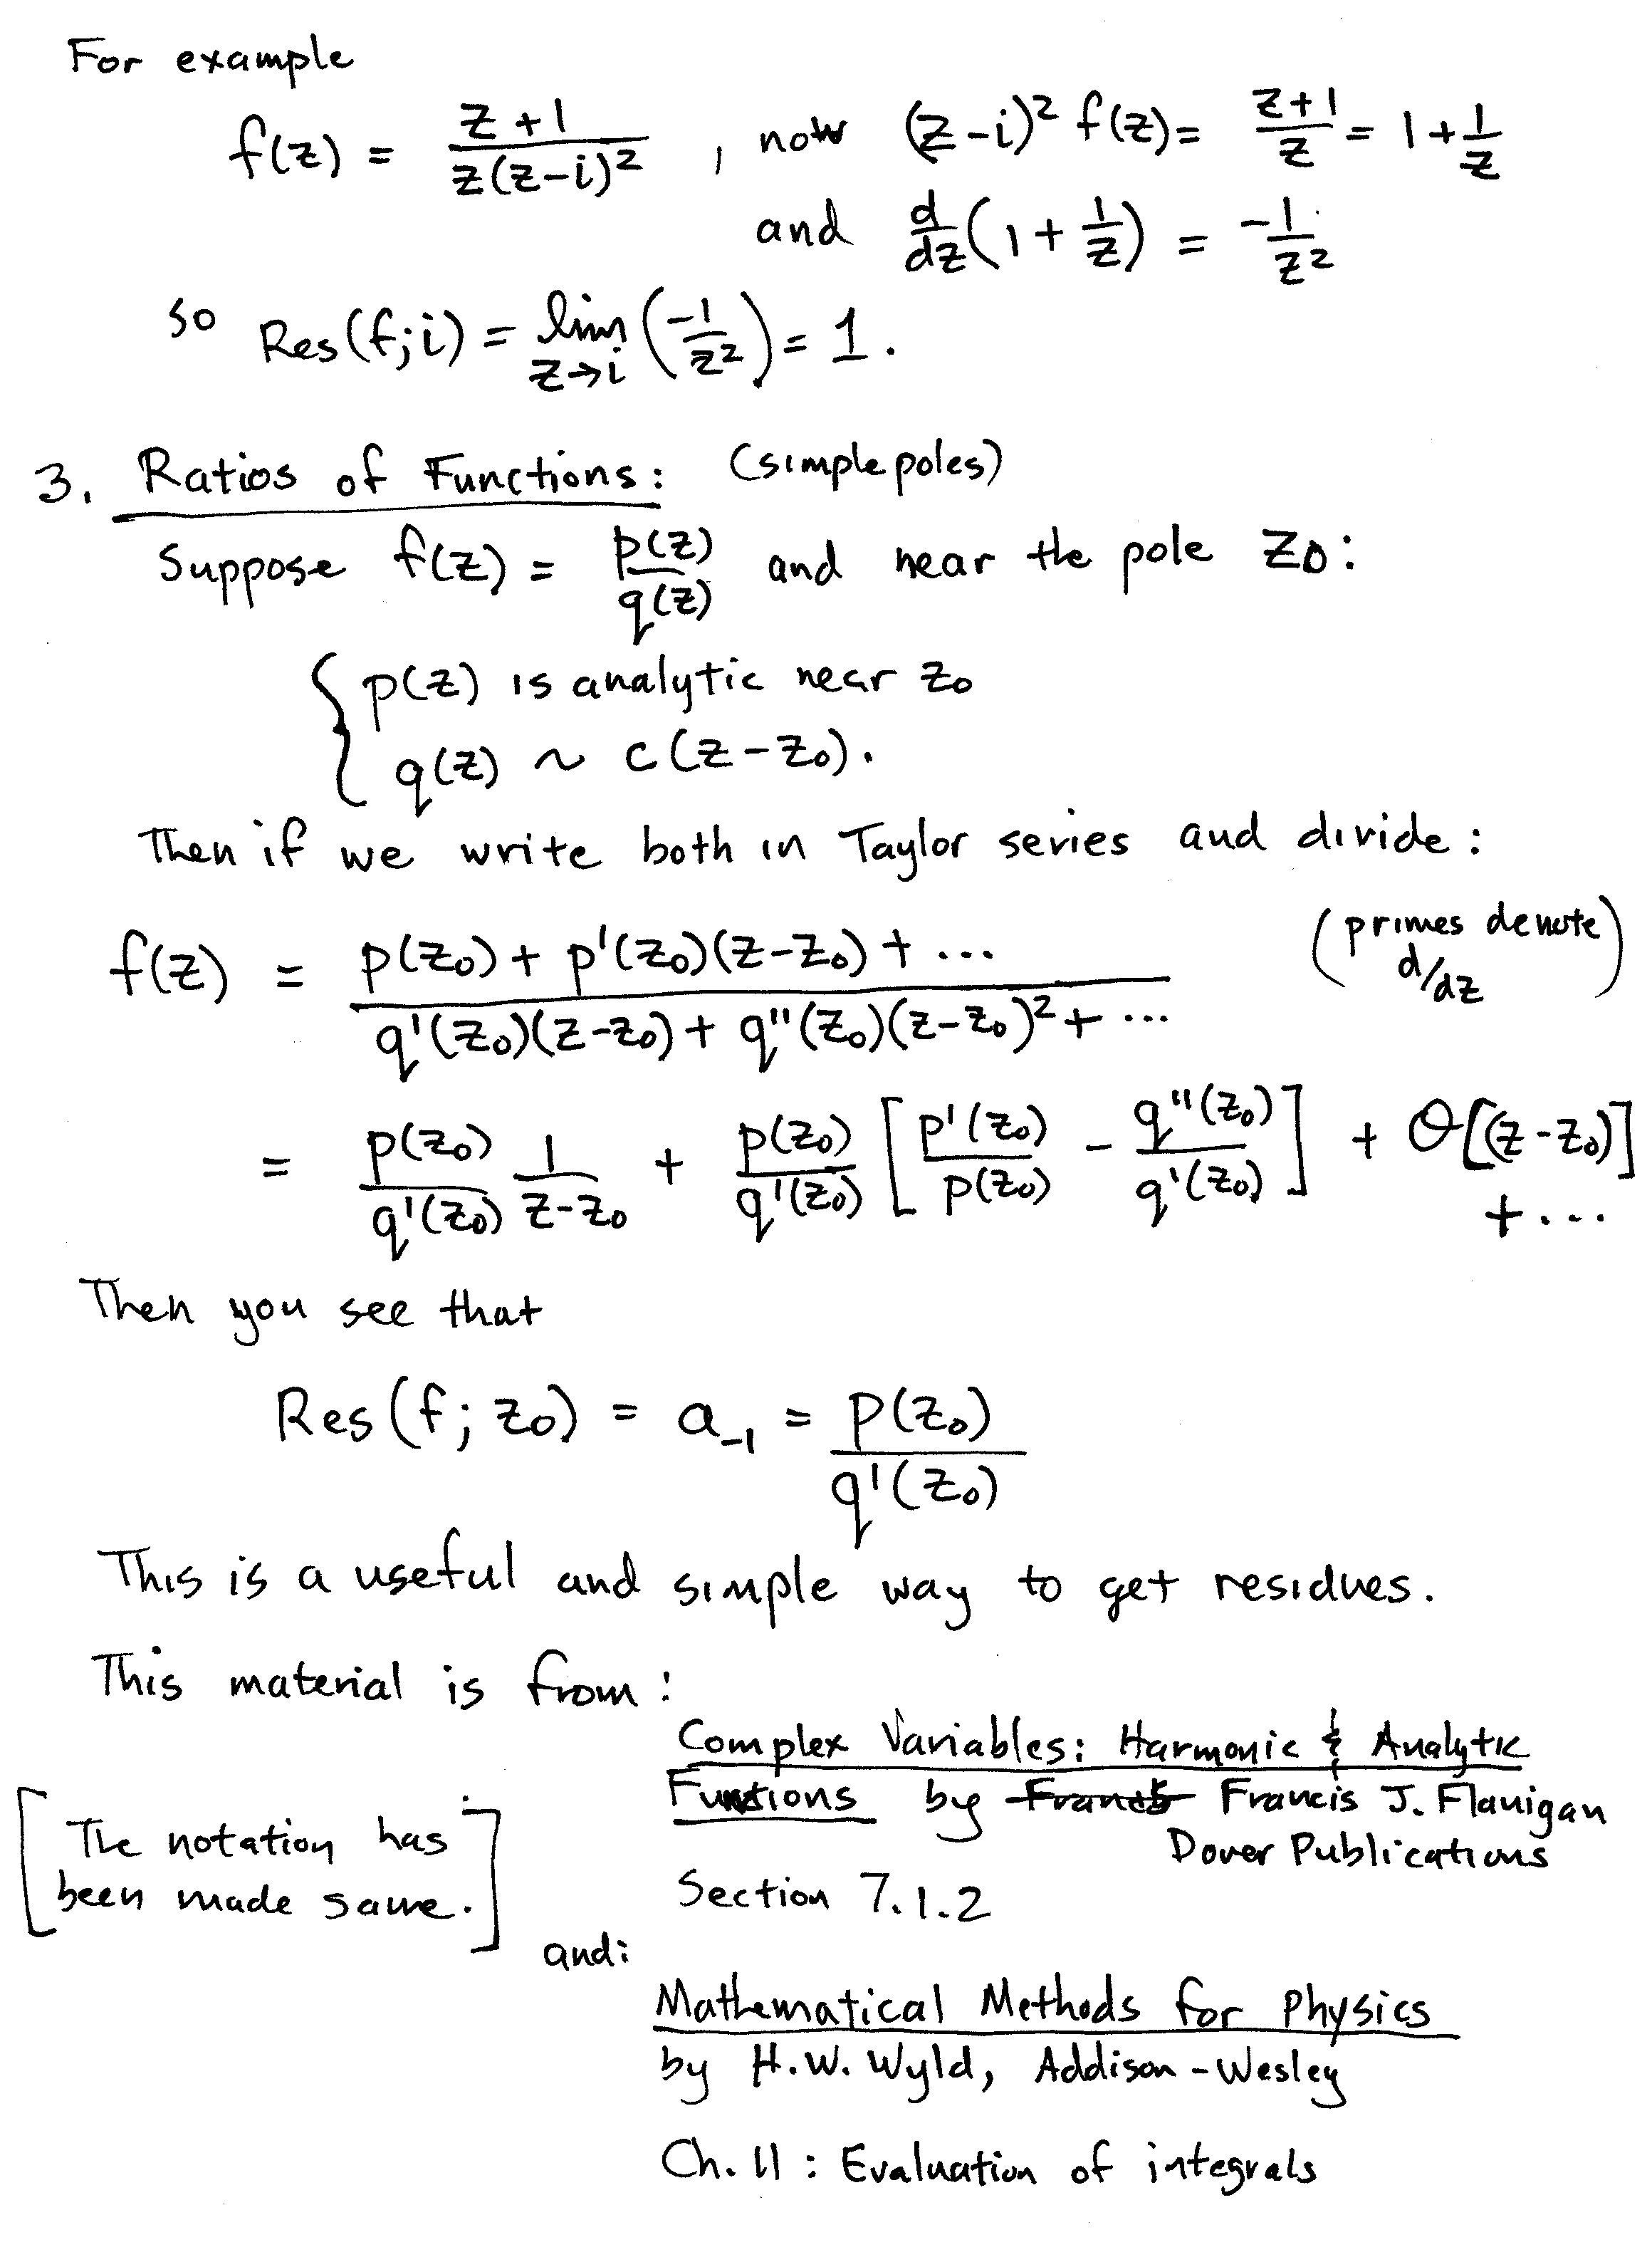 For example
f(z) = \frac{z+1}{z(z-i)^2} , now (z-i)^2 f(z) = \frac{z+1}{z} = 1 + \frac{1}{z}
and \frac{d}{dz}(1 + \frac{1}{z}) = \frac{-1}{z^2}
so Res(f;i) = \lim_{z→i} (\frac{-1}{z^2}) = 1.
3. Ratios of Functions: (simple poles)
Suppose f(z) = \frac{p(z)}{q(z)} and near the pole z_0:
{ p(z) is analytic near z_0
q(z) ~ c(z-z_0).
Then if we write both in Taylor series and divide:
f(z) = \frac{p(z_0) + p'(z_0)(z-z_0) + ...}{q'(z_0)(z-z_0) + q''(z_0)(z-z_0)^2 + ...} (primes denote d/dz)
= \frac{p(z_0)}{q'(z_0)} \frac{1}{z-z_0} + \frac{p(z_0)}{q'(z_0)} [\frac{p'(z_0)}{p(z_0)} - \frac{q''(z_0)}{q'(z_0)}] + O[(z-z_0)]
+ ...
Then you see that
Res(f; z_0) = a_{-1} = \frac{p(z_0)}{q'(z_0)}
This is a useful and simple way to get residues.
This material is from:
Complex Variables: Harmonic & Analytic
Functions by Francis J. Flanigan
Dover Publications
Section 7.1.2
[The notation has
been made same.]
and:
Mathematical Methods for Physics
by H.W. Wyld, Addison-Wesley
Ch. 11: Evaluation of integrals